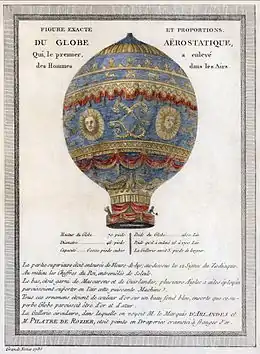 FIGURE EXACTE ET PROPORTIONS.
DU GLOBE AËROSTATIQUE,
Qui, le premier, a enlevé
des Hommes dans les Airs
Hauteur du Globe 70 pieds
Diametre 46 pieds
Capacité pieds cubes
Poids du Globe 1600 Liv.
Poids qu'il a enlevé
La Gallerie avoit
La partie supérieure étoit entourée de Fleurs-de-lys, au-dessous les 12 Signes du Zodiaque.
Au milieu les Chiffres du Roi, entremêlés de Soleils.
Le bas, étoit garni de Mascarons et de Guirlandes, plusieurs Aigles à ailes éployées
paroissoient supporter en l'air cette puissante Machine.
Tous ces ornemens étoient de couleur d'or sur un beau fond bleu, ensorte que ce superbe
Globe paroissoit être d'or et d'azur.
La Gallerie circulaire, dans laquelle on voyoit M. le Marquis D'ARLANDES et
M. PILATRE DE ROZIER, étoit peinte en Draperies cramoisi à franges d'or.